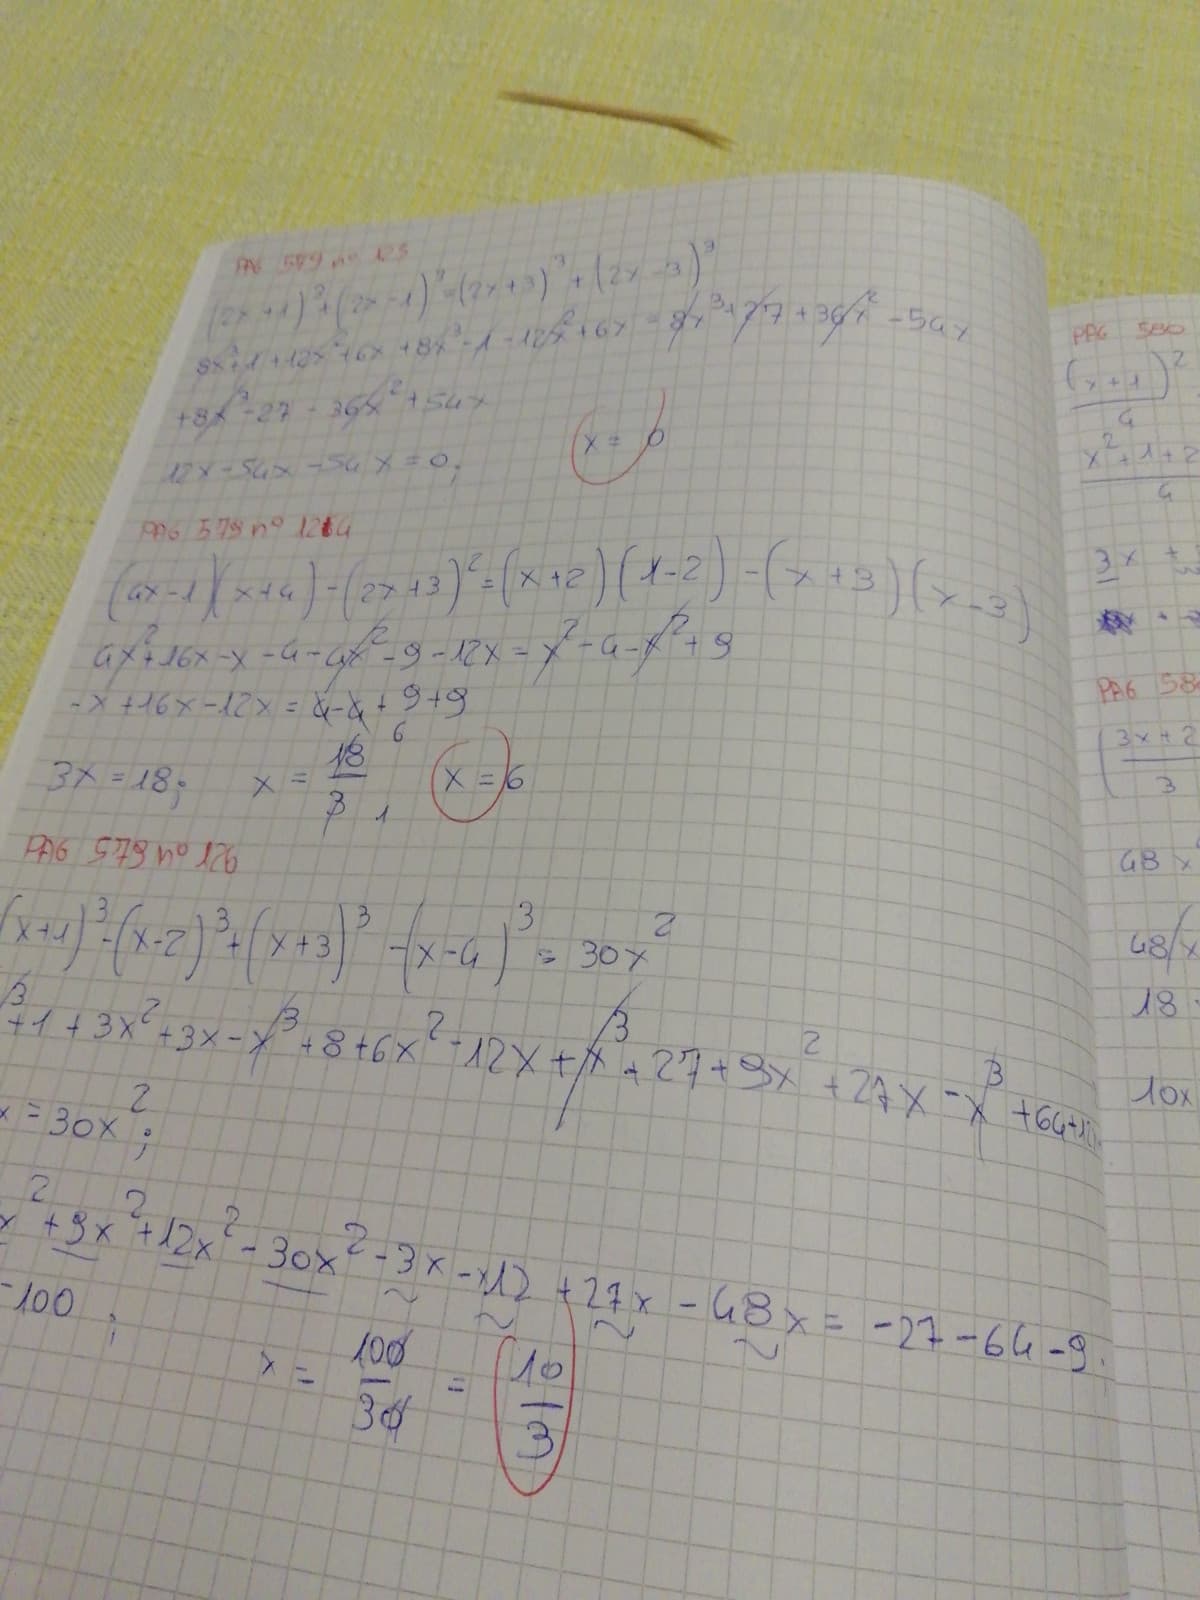 PAG 579 nº 125
(2x+1)³+(2x-1)³=(2x+3)³+(2x-3)³
8x³+1+12x²+6x+8x³-1-12x²+6x=8x³+27+36x²-54x
+8x³-27-36x²+54x
12x-54x-54x=0; x=0
PAG 579 nº 124
(4x-1)(x+4)-(2x+3)²=(x+2)(1-2)-(x+3)(x-3)
4x²+16x-x-4-4x²-9-12x=x²-4-x²+9
-x+16x-12x=4-4+9+9
3x=18; x=18/3 6 1 x=6
PAG 579 nº 126
(x+1)³-(x-2)³+(x+3)³-(x-4)³=30x²
³+1+3x²+3x-x³+8+6x²-12x+x³+27+9x²+27x-x³+64+12
x=30x²;
x²+9x²+12x²-30x²-3x-12+27x-48x=-27-64-9
-100; x=100/30=10/3
PAG 580
(x+1)²/4
x²+1+2/4
3x+
PAG 58
(3x+2/3
48x
48(x
18
10x